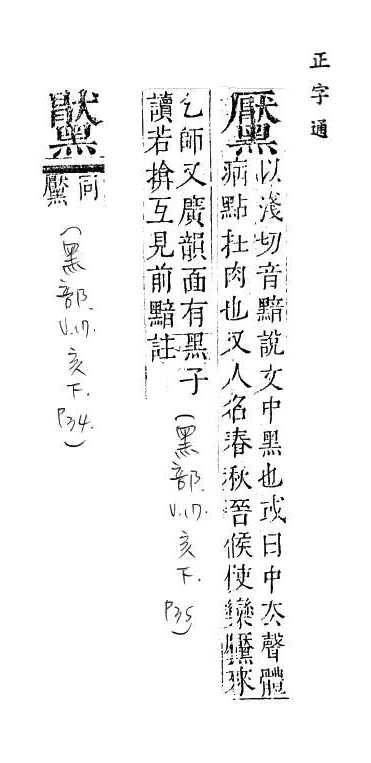 正字通
黶
以淺切音黯說文中黑也或曰中厺聲體
病點在肉也又人名春秋晉侯使欒黶來
乞師又廣韻面有黑子
讀若揜互見前黯註
(黑部. V.17. 亥下. P35)
同
黶
(黑部. V.17. 亥下. P34.)